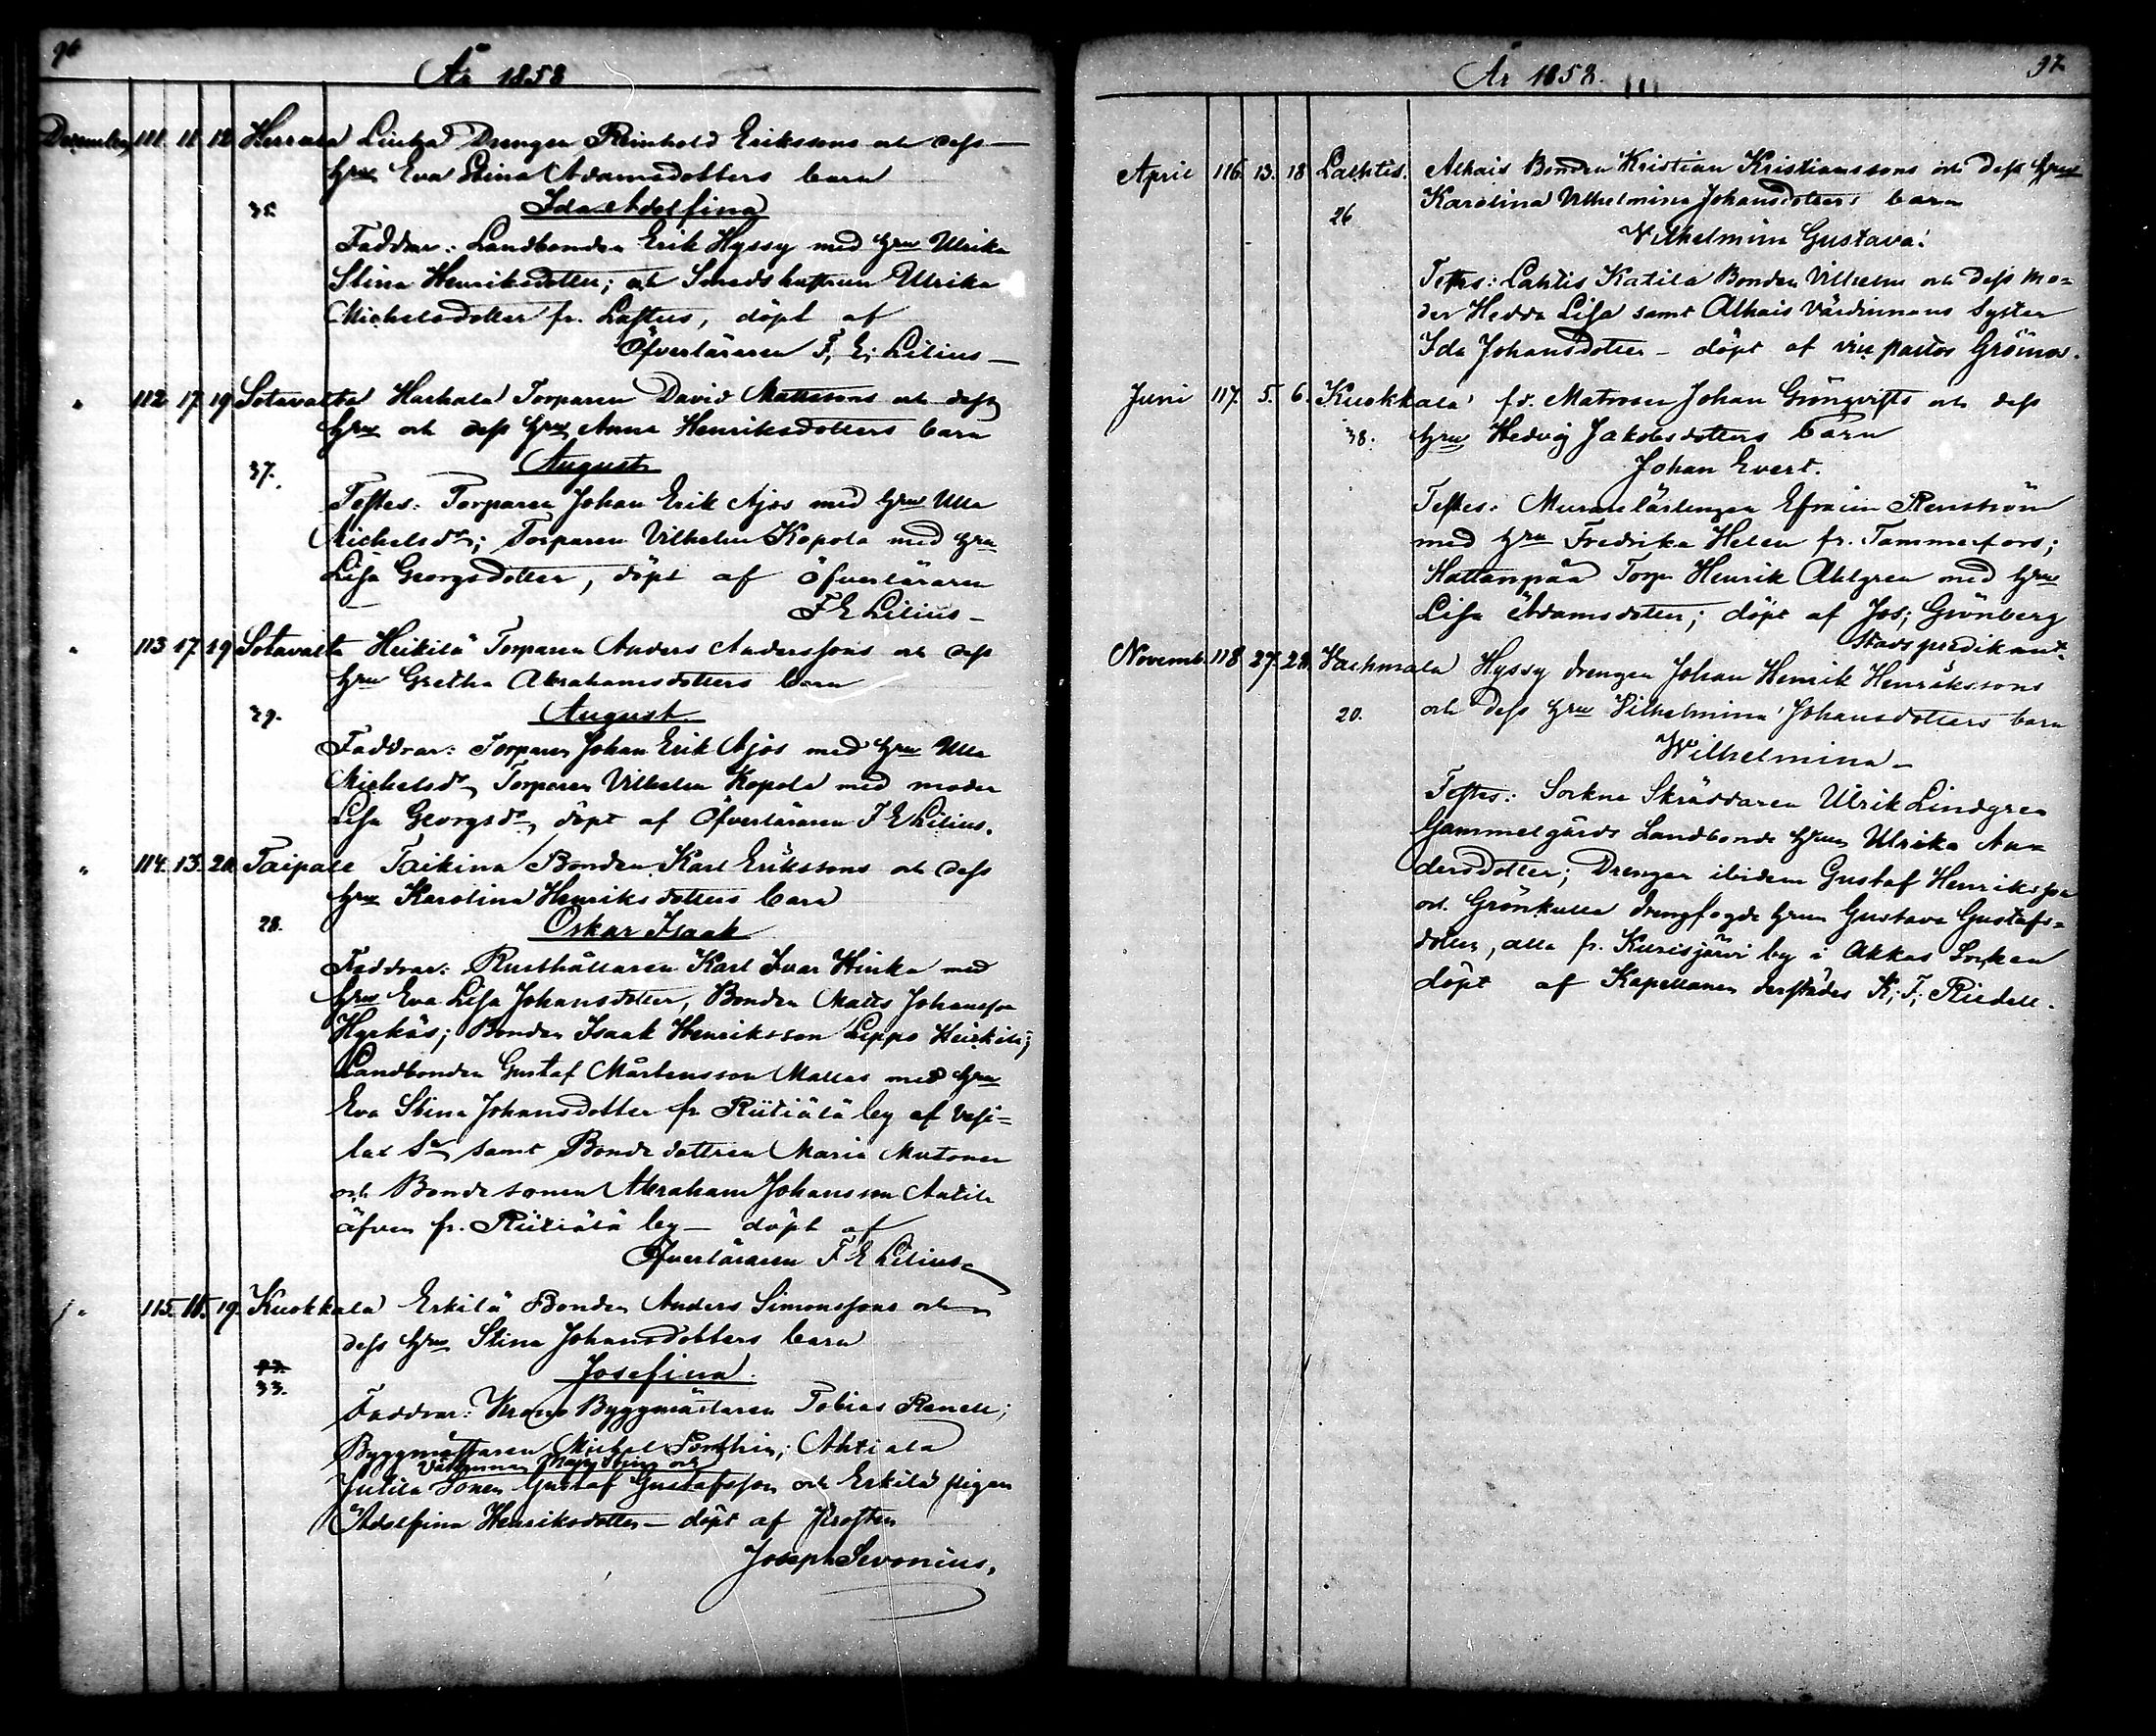 96
År 1858
December 111. 11. 12 Herrala Liuha Drengen Reinhold Erikssons och dess
hru Eva Stina Adamsdotters barn
35. Ida Adolfina
Faddrar: Landbonden Erik Hyssy med hru Ulrika
Stina Henriksdotter; och Smedshustrun Ulrika
Michelsdotter fr. Laftus, döpt af
Öfverläraren F. E. Lilius
" 112. 17. 19 Sotavalta Harhala Torparen David Mattssons och dess
hru och dess hru Anna Henriksdotters barn
37. August
Testes: Torparen Johan Erik Ajos med hru Ulla
Michelsdr; Torparen Vilhelm Kopola med hru
Lisa Georgsdotter, döpt af Öfverläraren
F E Lilius
" 113 17. 19 Sotavalta Heikilä Torparen Anders Anderssons och dess
hru Gretha Abrahamsdotters barn
39. August
Faddrar: Torparen Johan Erik Ajos med hru Ulla
Michelsdr, Torparen Vilhelm Kopola med moder
Lisa Georgsdr, döpt af Öfverläraren F E Lilius.
" 114. 13. 20 Taipale Taikina Bonden Karl Erikssons och dess
hru Karolina Henriksdotters barn
28. Oskar Isaak
Faddrar: Rusthållaren Karl Ivar Hinka med
hru Eva Lisa Johansdotter, Bonden Matts Johansson
Hyrkäs; Bonden Isaak Henriksson Leppo Heikilä;
Landbonden Gustaf Mårtensson Mattas med hru
Eva Stina Johansdotter fr. Riitiälä by af Vesi-
lax Sn samt Bondedottren Maria Mutonen
och Bondesonen Abraham Johansson Antila
äfven fr. Riitiälä by – döpt af
Öfverläraren F E Lilius
" 115. 18. 19. Kuokkala Erkilä Bonden Anders Simonssons och
dess hru Stina Johansdotters barn
33. Josefina
Faddrar: Krono Byggmästaren Tobias Renell;
Byggmästaren Michel; Ahtiala
Värdinnan Maja Stina och
Jutila Sonen Gustaf Gustafsson och Erkilä pigan
Adolfina Henriksdotter – döpt af Prosten
Joseph Sevonius.
97
År 1858.
April 116. 13. 18 Lahtis. Alhais Bonden Kristian Kristianssons och dess hru
Karolina Vilhelmina Johansdotters barn
26 Wilhelmina Gustava.
Testes: Lahtis Katila Bonden Vilhelm och dess Mo-
der Hedda Lisa samt Alhais Värdinnans Syster
Ida Johansdotter – döpt af vice pastor Grönros.
Juni 117. 5. 6. Kuokkala fd. Matrosen Johan Grönqvists och dess
38. hru Hedvig Jakobsdotters barn
Johan Evert.
Testes: Murarelärlingen Efraim Renström
med hru Fredrika Helen fr. Tammerfors;
Hattanpää Torp. Henrik Ahlgren med hru
Lisa Adamsdotter; döpt af Jos; Grönberg
Stadspredikant.
Novemb. 118 27. 28. Hachmala Hyssy drengen Johan Henrik Henrikssons
20. och dess hru Vilhelmina Johansdotters barn
Wilhelmina
Testes: Sockne Skräddaren Ulrik Lindgren
Gammelgårds Landbonde hrun Ulrika An-
dersdotter; Drengen ibidem Gustaf Henriksson
och Grönkulla drengfogde hrun Gustava Gustafs-
dotter, alla fr. Kurisjärvi by i Akkas Socken
döpt af Kapellanen derstädes K; F; Riedell.